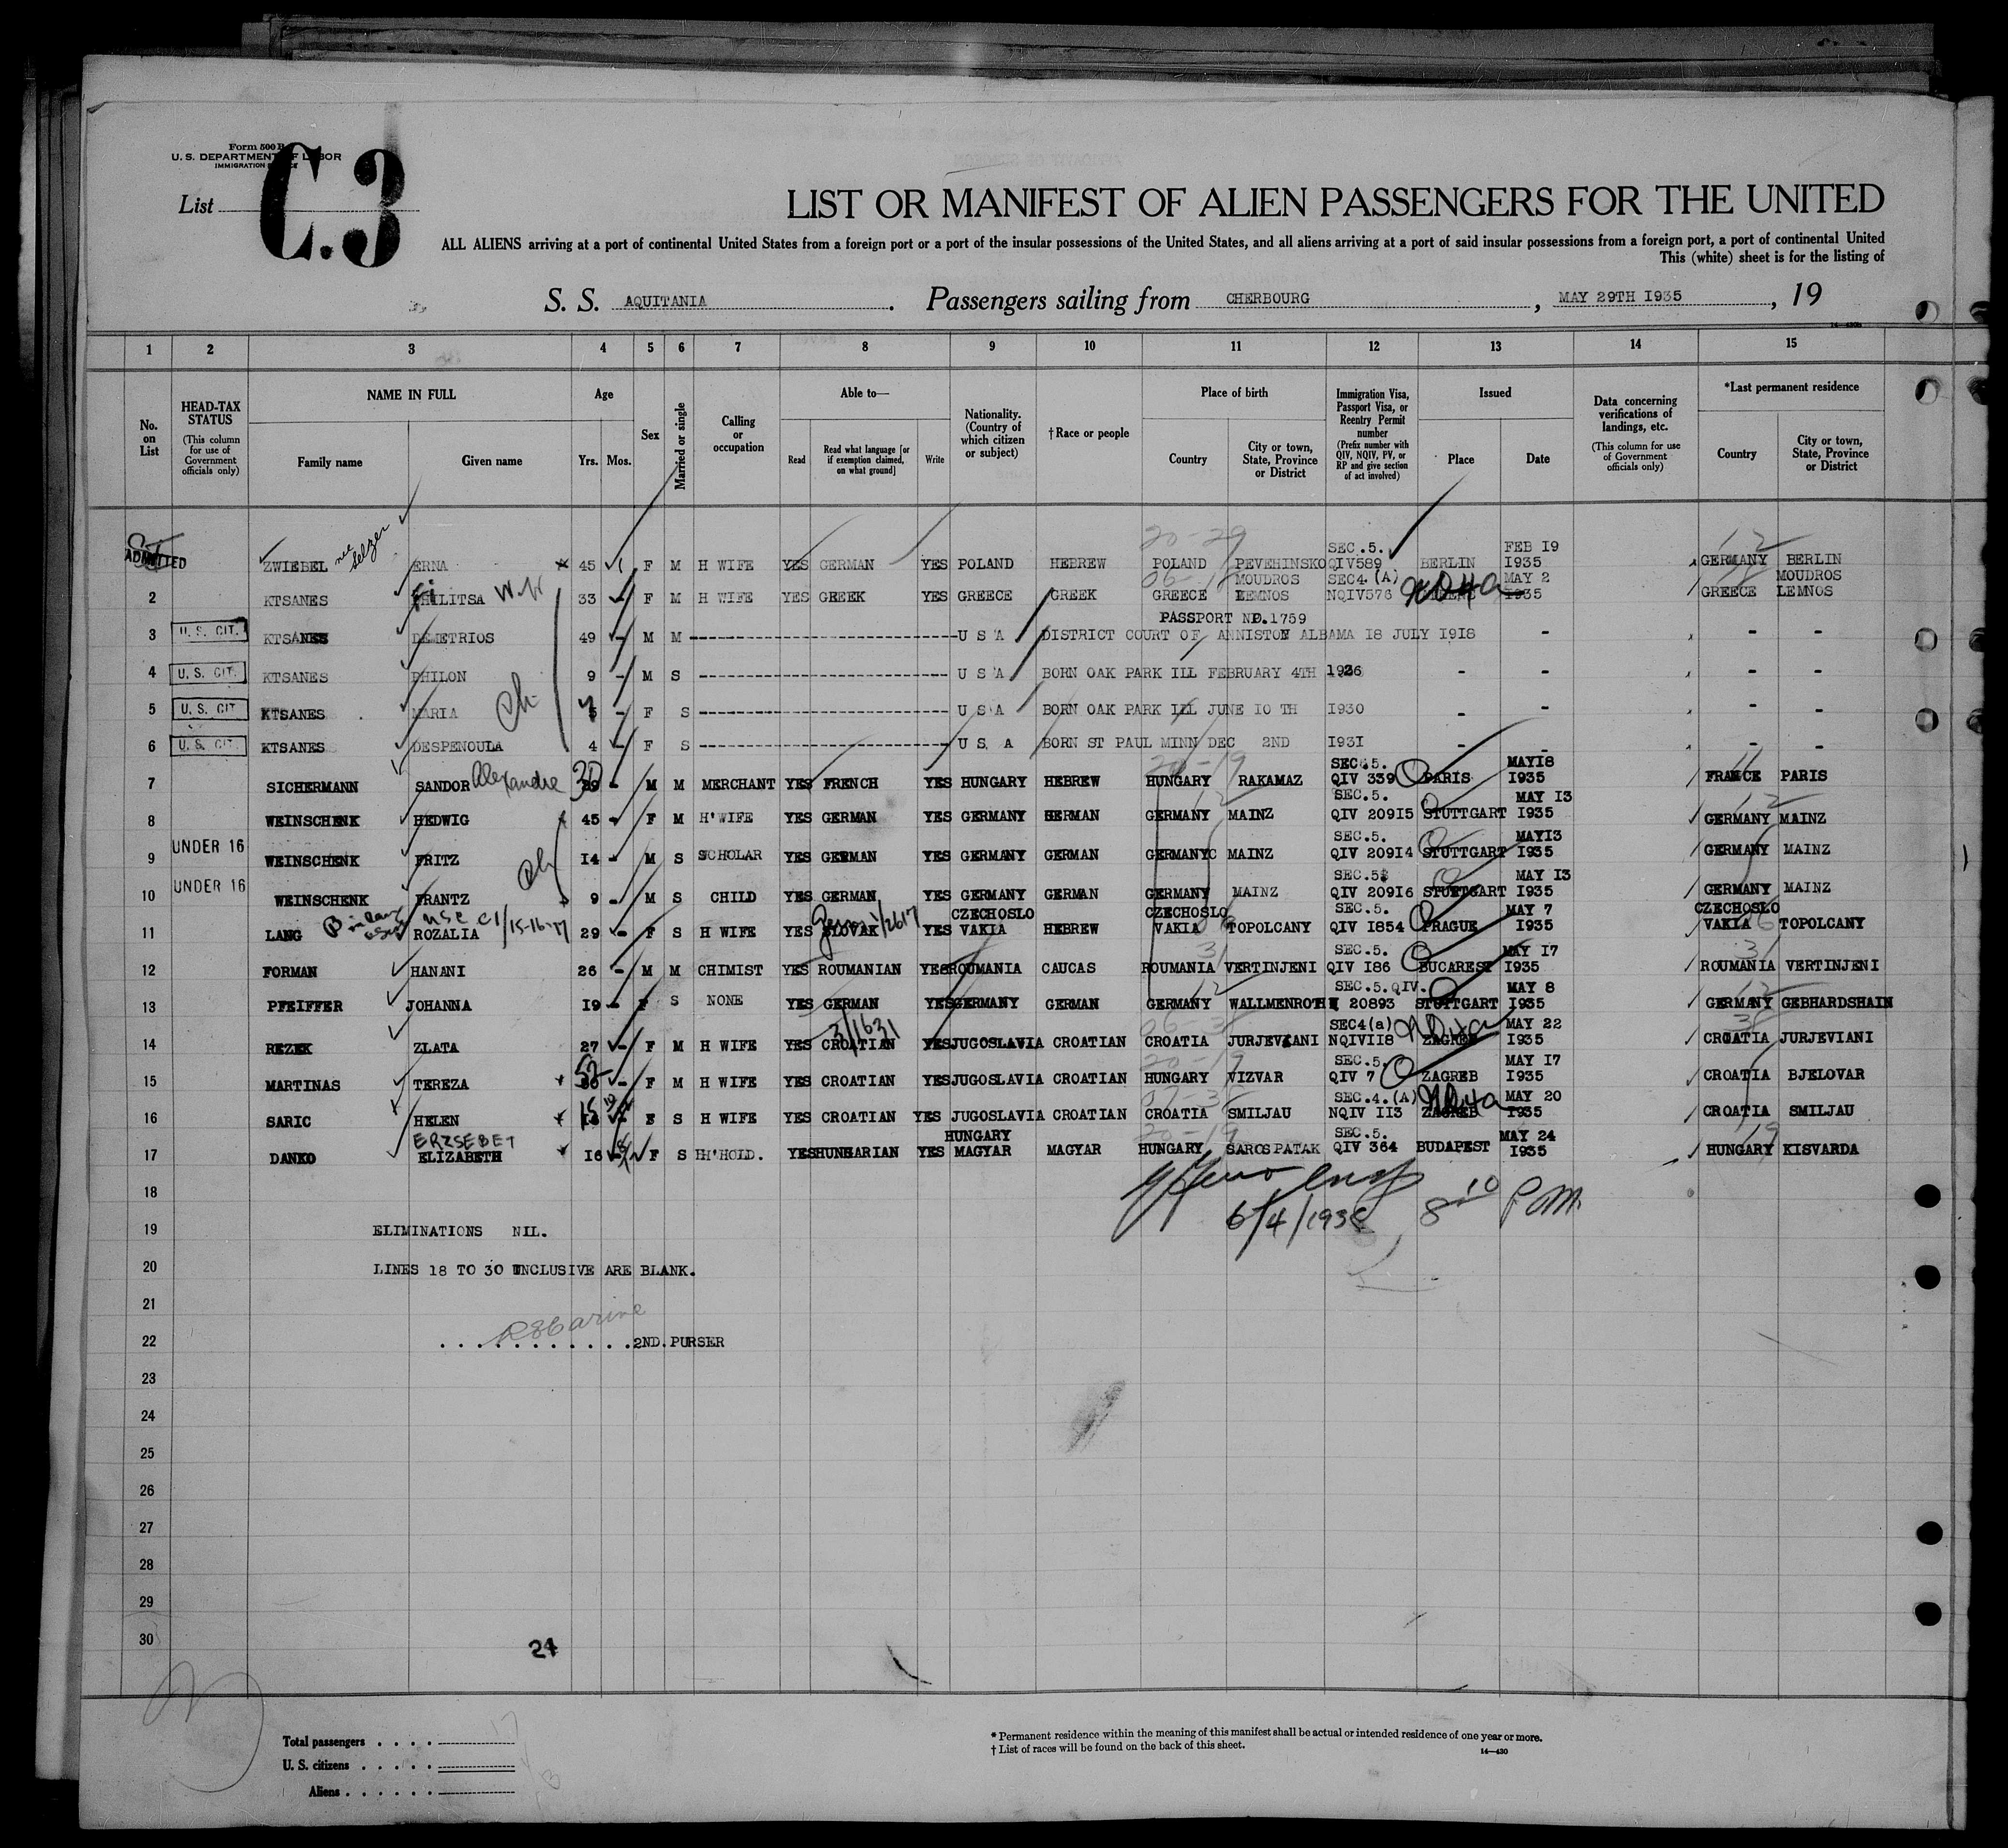 Form 500 B
U. S. DEPARTMENT OF LABOR
IMMIGRATION SERVICE
List C.3
LIST OR MANIFEST OF ALIEN PASSENGERS FOR THE UNITED
ALL ALIENS arriving at a port of continental United States from a foreign port or a port of the insular possessions of the United States, and all aliens arriving at a port of said insular possessions from a foreign port, a port of continental United
This (white) sheet is for the listing of
S. S. AQUITANIA. Passengers sailing from CHERBOURG, MAY 29TH I935, 19
14-430b
1 2 3 4 5 6 7 8 9 10 11 12 13 14 15
No. on List
HEAD-TAX STATUS (This column for use of Government officials only)
NAME IN FULL Family name Given name
Age Yrs. Mos.
Sex
Married or single
Calling or occupation
Able to— Read Read what language [or if exemption claimed, on what ground] Write
Nationality. (Country of which citizen or subject)
†Race or people
Place of birth Country City or town, State, Province or District
Immigration Visa, Passport Visa, or Reentry Permit number (Prefix number with QIV, NQIV, PV, or RP and give section of act involved)
Issued Place Date
Data concerning verifications of landings, etc. (This column for use of Government officials only)
*Last permanent residence Country City or town, State, Province or District
20-29 SEC.5. FEB I9 12
ADMITTED ZWIEBEL nee Selzer ERNA 45 F M H WIFE YES GERMAN YES POLAND HEBREW POLAND PEVEHINSKO QIV589 BERLIN I935 GERMANY BERLIN
MOUDROS SEC4.(A) MAY 2 MOUDROS
2 KTSANES PHILITSA 33 F M H WIFE YES GREEK YES GREECE GREEK GREECE LEMNOS NQIV576 I935 GREECE LEMNOS
PASSPORT NO.1759
3 U. S. CIT. KTSANES DEMETRIOS 49 - M M U S A DISTRICT COURT OF ANNISTON ALBAMA I8 JULY I9I8 - - - -
4 U. S. CIT. KTSANES PHILON 9 - M S U S A BORN OAK PARK ILL FEBRUARY 4TH 1926 - - - -
5 U. S. CIT. KTSANES MARIA - F S U S A BORN OAK PARK ILL JUNE IO TH I930 - - - -
6 U. S. CIT. KTSANES DESPENOULA 4 - F S U S A BORN ST PAUL MINN DEC 2ND I93I - - - -
20-19 SEC.5. MAYI8
7 SICHERMANN SANDOR Alexandre 30 - M M MERCHANT YES FRENCH YES HUNGARY HEBREW HUNGARY RAKAMAZ QIV 339 PARIS I935 FRANCE PARIS
SEC.5. MAY I3
8 WEINSCHENK HEDWIG 45 - F M H'WIFE YES GERMAN YES GERMANY GERMAN GERMANY MAINZ QIV 209I5 STUTTGART I935 GERMANY MAINZ
UNDER 16 SEC.5. MAYI3
9 WEINSCHENK FRITZ I4 - M S SCHOLAR YES GERMAN YES GERMANY GERMAN GERMANY MAINZ QIV 209I4 STUTTGART I935 GERMANY MAINZ
UNDER 16 SEC.5 MAY I3
10 WEINSCHENK FRANTZ 9 - M S CHILD YES GERMAN YES GERMANY GERMAN GERMANY MAINZ QIV 209I6 STUTTGART I935 GERMANY MAINZ
CZECHOSLO CZECHOSLO SEC.5. MAY 7 CZECHOSLO
11 LANG ROZALIA 29 - F S H WIFE YES SLOVAK YES VAKIA HEBREW VAKIA TOPOLCANY QIV I854 PRAGUE I935 VAKIA TOPOLCANY
SEC.5. MAY I7
12 FORMAN HANANI 26 - M M CHIMIST YES ROUMANIAN YES ROUMANIA CAUCAS ROUMANIA VERTINJENI QIV I86 BUCAREST I935 ROUMANIA VERTINJENI
SEC.5.QIV. MAY 8
13 PFEIFFER JOHANNA I9 - F S NONE YES GERMAN YES GERMANY GERMAN GERMANY WALLMENROTH 20893 STUTTGART I935 GERMANY GEBHARDSHAIN
SEC4(a) MAY 22
14 REZEK ZLATA 27 - F M H WIFE YES CROATIAN YES JUGOSLAVIA CROATIAN CROATIA JURJEVIANI NQIVII8 ZAGREB I935 CROATIA JURJEVIANI
20-19 SEC.5. MAY I7
15 MARTINAS TEREZA 52 - F M H WIFE YES CROATIAN YES JUGOSLAVIA CROATIAN HUNGARY VIZVAR QIV 7 ZAGREB I935 CROATIA BJELOVAR
SEC.4.(A) MAY 20
16 SARIC HELEN F S H WIFE YES CROATIAN YES JUGOSLAVIA CROATIAN CROATIA SMILJAU NQIV II3 ZAGREB I935 CROATIA SMILJAU
ERZSEBET HUNGARY 20-19 SEC.5. MAY 24
17 DANKO ELIZABETH I6 F S H'HOLD. YES HUNGARIAN YES MAGYAR MAGYAR HUNGARY SAROSPATAK QIV 364 BUDAPEST I935 HUNGARY KISVARDA
18
6/4/1935 8 10 P.M.
19 ELIMINATIONS NIL.
20 LINES I8 TO 30 INCLUSIVE ARE BLANK.
21
22 . . . . . . . . . . . 2ND. PURSER
23
24
25
26
27
28
29
30
24
Total passengers . . . . 17
U. S. citizens . . . . .
Aliens . . . . . .
* Permanent residence within the meaning of this manifest shall be actual or intended residence of one year or more.
† List of races will be found on the back of this sheet.
14—430